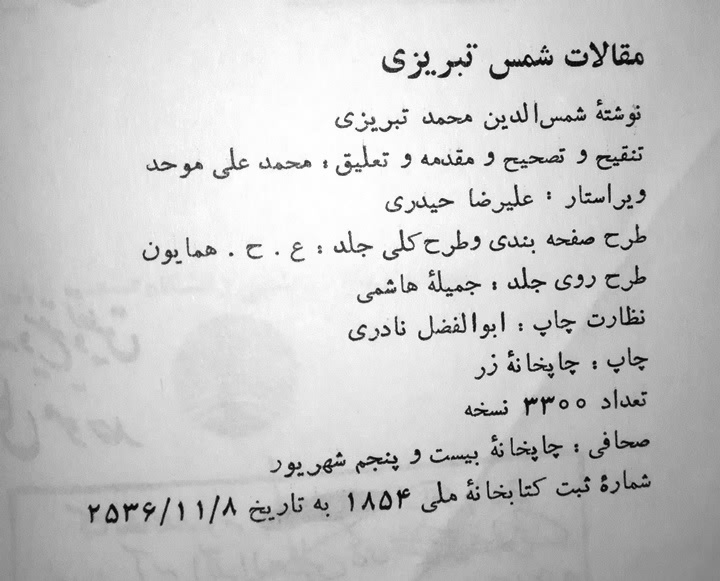 مقالات شمس تبریزی
نوشتهٔ شمس‌الدین محمد تبریزی
تنقیح و تصحیح و مقدمه و تعلیق : محمد علی موحد
ویراستار : علیرضا حیدری
طرح صفحه بندی و طرح کلی جلد : ع . ح . همایون
طرح روی جلد : جمیلهٔ هاشمی
نظارت چاپ : ابوالفضل نادری
چاپ : چاپخانهٔ زر
تعداد ۳۳۰۰ نسخه
صحافی : چاپخانهٔ بیست و پنجم شهریور
شمارهٔ ثبت کتابخانهٔ ملی ۱۸۵۴ به تاریخ ۲۵۳۶/۱۱/۸